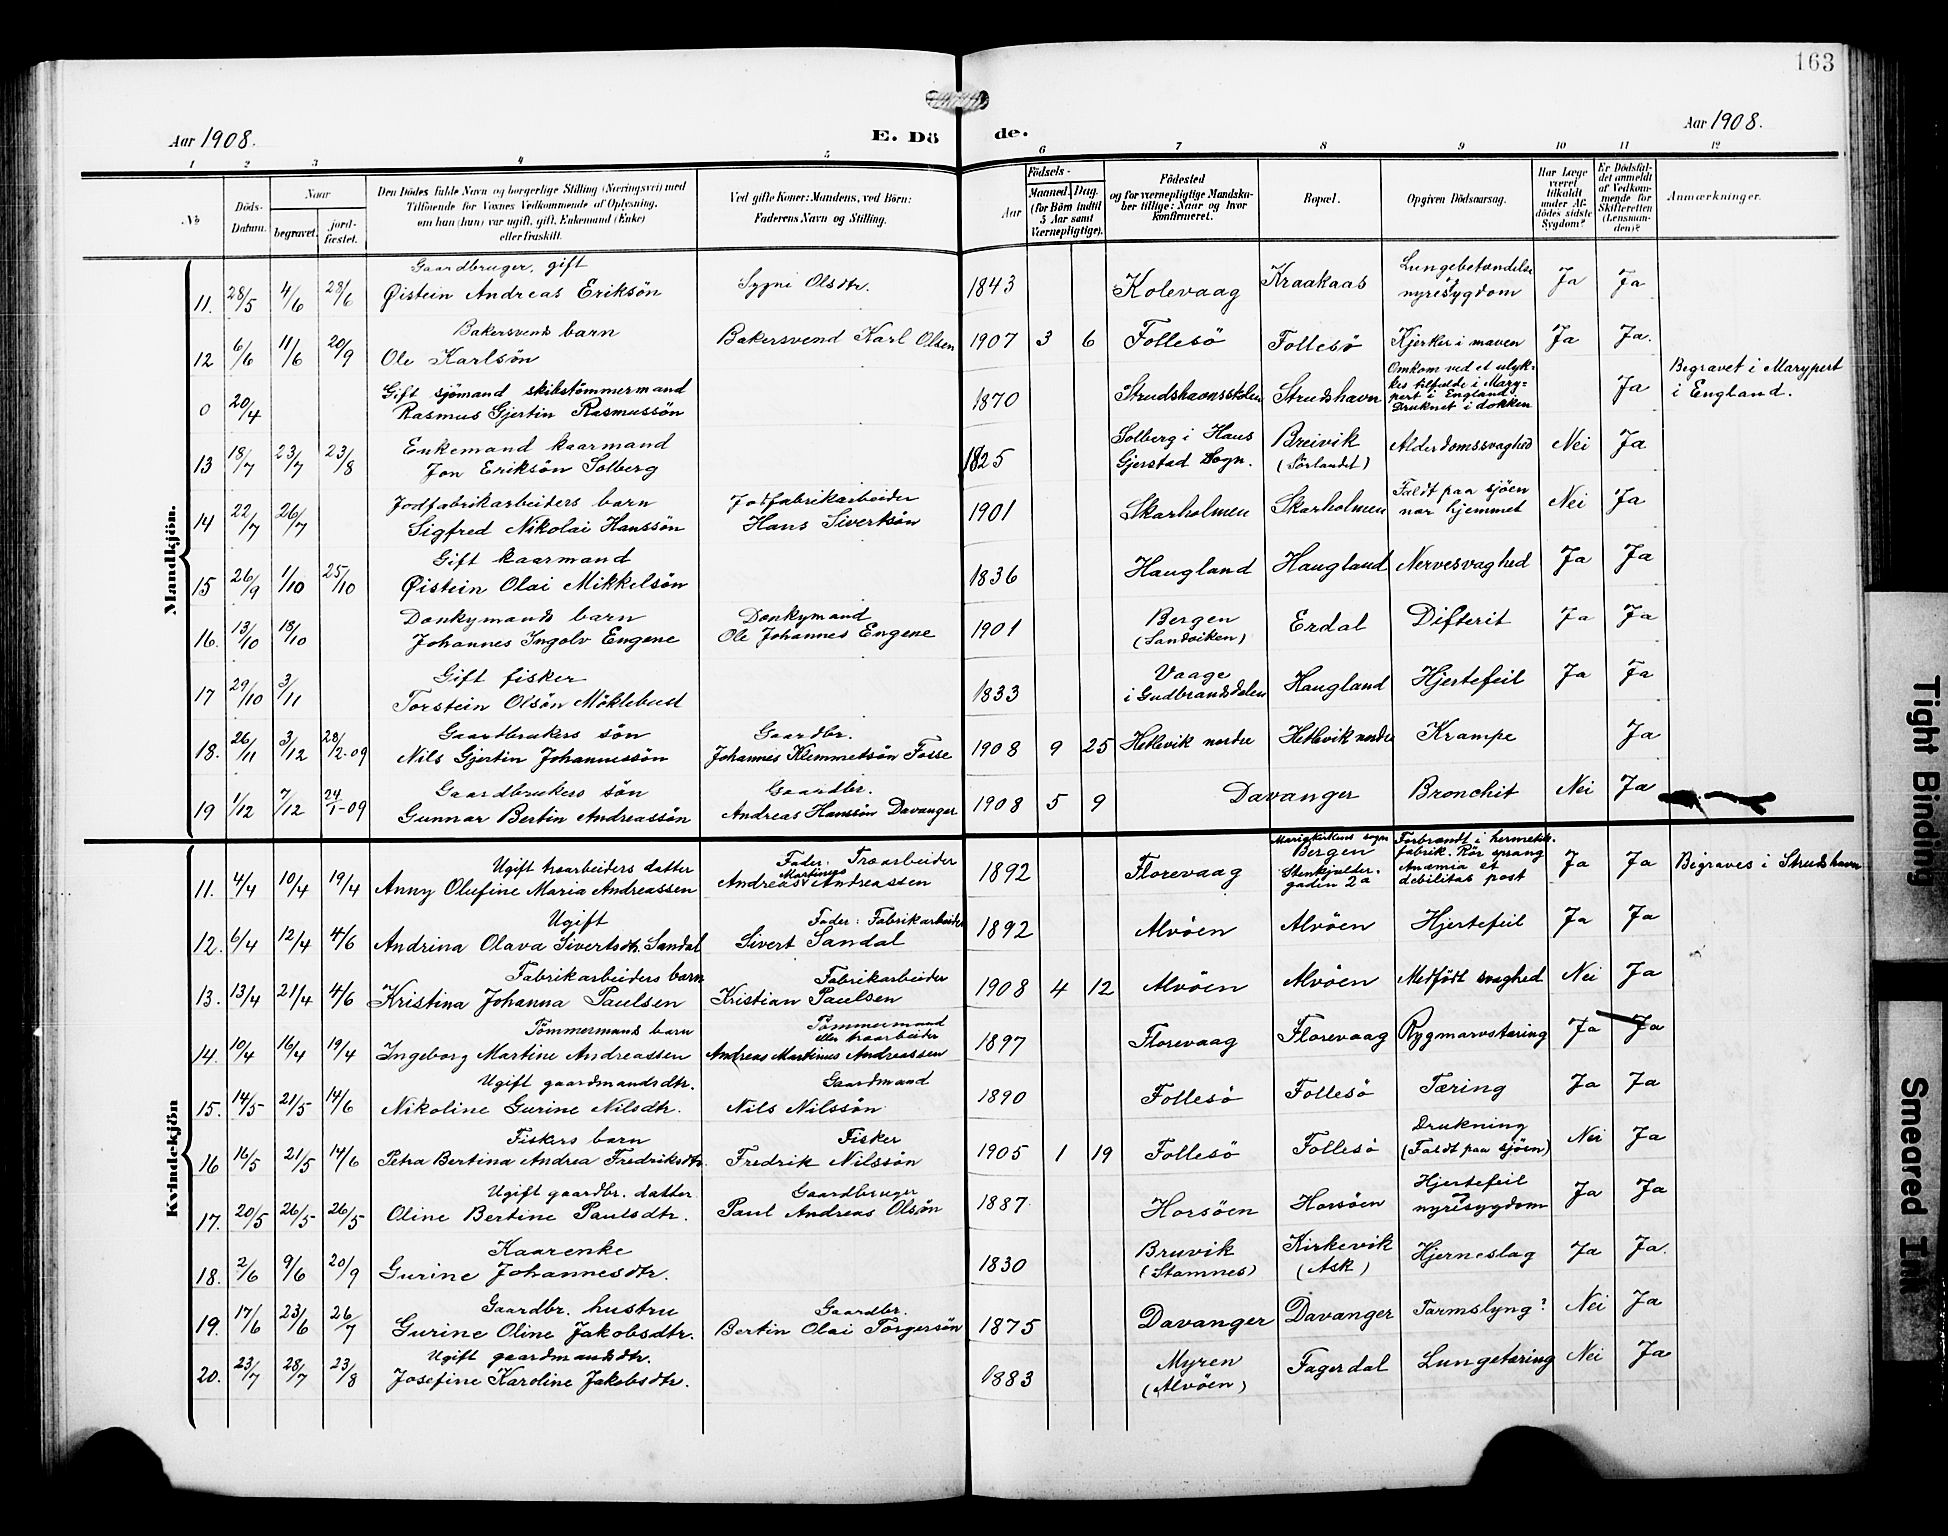 163
Aar 1908.
E. Dö de.
Aar 1908.
1 2 3 4 5 6 7 8 9 10 11 12
No
Döds-Datum.
Naar
begravet.
jord-fæstet.
Den Dödes fulde Navn og borgerlige Stilling (Næringsvei) med
Tilföiende for Voxnes Vedkommende af Oplysning,
om han (hun) var ugift, gift, Enkemand (Enke)
eller fraskilt.
Ved gifte Koner: Mandens, ved Börn:
Faderens Navn og Stilling.
Födsels-
Aar
Maaned. Dag.
(for Börn indtil
5 Aar samt
Værnepligtige).
Födested
og for værnepligtige Mandska-
ber tillige: Naar og hvor
Konfirmeret.
Bopæl.
Opgiven Dödsaarsag.
Har Læge
været
tilkaldt
under Af-
dödes sidste
Sygdom?
Er Dödsfal-
det anmeldt
af Vedkom-
mende for
Skifteretten
(Lensman-
den)?
Anmærkninger.
Mandkjön.
11. 28/5 4/6 28/6 Gaardbruger, gift
Øistein Andreas Eriksön Sygni Olsdtr. 1843 Kolevaag Kraakaas Lungebetændelse og nyresygdom Ja Ja
12 6/6 11/6 20/9 Bakersvends barn
Ole Karlsön Bakersvend Karl Olsen 1907 3 6 Follesö Follesö Kjerker i maven Ja Ja.
0 20/4 Gift sjömand skibstömmermand
Rasmus Gjertin Rasmussön 1870 Strudshavnsstölen Strudshavn Omkom ved et ulyk-
kestilfælde i Mary-
pert i England.
Druknet i dokken Ja Begravet i Marypert
i England.
13 18/7 23/7 23/8 Enkemand kaarmand
Jon Eriksön Solberg 1825 Solberg i Haus
Gjerstad Sogn. Breivik
(Sörlandet) Alderdomssvaghed Nei Ja
14 22/7 26/7 Jodfabrikarbeiders barn
Sigfred Nikolai Hanssön Jodfabrikarbeider
Hans Sivertsön 1901 Skarholmen Skarholmen Faldt paa sjöen
nær hjemmet Nei Ja
15 26/9 1/10 25/10 Gift kaarmand
Øistein Olai Mikkelsön 1836 Haugland Haugland Nervesvaghed Ja Ja
16. 13/10 18/10 Donkymands barn
Johannes Ingolv Engene Donkymand
Ole Johannes Engene 1901 Bergen
(Sandviken) Erdal Difterit Ja Ja
17 29/10 3/11 Gift fisker
Torstein Olsön Möklebust 1833 Vaage
i Gudbrandsdalen Haugland Hjertefeil Ja Ja
18. 26/11 3/12 28/2-09 Gaardbrukers sön
Nils Gjertin Johannessön Gaardbr.
Johannes Klemmetsön Fosse 1908 9 25 Hetlevik nordre Hetlevik nordre Krampe Ja
19 1/12 7/12 24/1-09 Gaardbrukers sön
Gunnar Bertin Andreassön Gaardbr.
Andreas Hanssön Davanger 1908 5 9 Davanger Bronchit Nei Ja
Kvindekjön
11. 4/4 10/4 19/4 Ugift træarbeiders datter
Anny Olufine Maria Andreassen Fader: Træarbeider
Andreas Martinus Andreassen 1892 Florevaag Mariakirkens sogn
Bergen
Stenkjælder-
gaden 2a Forbrændt i hermetik-
fabrik. Rör sprang
Anæmia et
debilitas post Ja Ja Begraves i Strudshavn
12. 6/4 12/4 4/6 Ugift
Andrina Olava Sivertsdtr. Sandal Fader: Fabrikarbeider
Sivert Sandal 1892 Alvöen Alvöen Hjertefeil Ja Ja
13. 13/4 21/4 4/6 Fabrikarbeiders barn
Kristina Johanna Paulsen Fabrikarbeider
Kristian Paulsen 1908 4 12 Alvöen Alvöen Medfödt svaghed Nei Ja
14. 10/4 16/4 19/4 Tömmermands barn
Ingeborg Martine Andreassen Tömmermand
eller træarbeider
Andreas Martinus Andreassen 1897 Florevaag Florevaag Rygmarvstæring Ja Ja
15. 14/5 21/5 14/6 Ugift gaardmandsdtr.
Nikoline Gurine Nilsdtr. Gaardmand
Nils Nilssön 1890 Follesö Follesö Tæring Ja Ja
16 16/5 21/5 14/6 Fiskers barn
Petra Bertina Andrea Fredriksdtr. Fisker
Fredrik Nilssön 1905 1 19 Follesö Follesö Drukning
(Faldt paa sjöen) Nei Ja
17. 20/5 26/5 26/5 Ugift gaardbr. datter
Oline Bertine Paulsdtr. Gaardbruger
Paul Andreas Olsön 1887 Horsöen Horsöen Hjertefeil
nyresygdom Ja Ja
18. 2/6 9/6 20/9 Kaarenke
Gurine Johannesdtr. 1830 Bruvik
(Stamnes) Kirkevik
(Ask) Hjerneslag Ja Ja.
19. 17/6 23/6 26/7 Gaardbr. hustru
Gurine Oline Jakobsdtr. Gaardbr.
Bertin Olai Torgersön 1875 Davanger Davanger Tarmslyng? Nei Ja
20. 23/7 28/7 23/8 Ugift gaardmandsdtr.
Josefine Karoline Jakobsdtr. 1883 Myren
(Alvöen) Fagerdal Lungetæring Nei Ja
Tight Binding
Smeared Ink